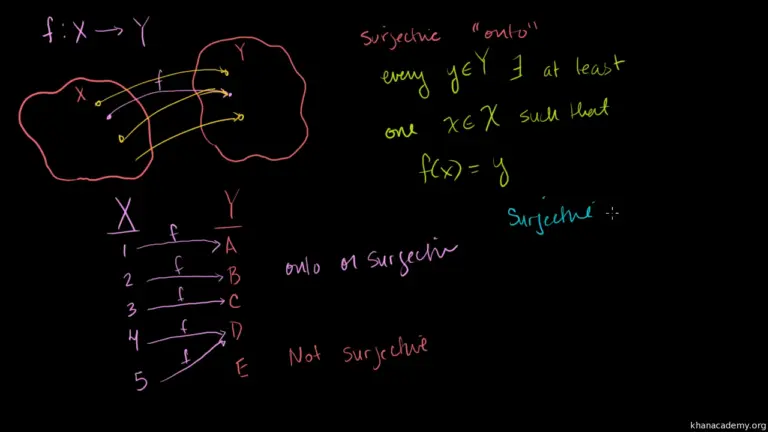 f : X → Y
X
f
Y
surjective "onto"
every y ∈ Y ∃ at least
one x ∈ X such that
f(x) = y
Surjective
X Y
1 f A
2 f B
3 f C
4 f D
5 f E
onto or surjective
Not surjective
khanacademy.org